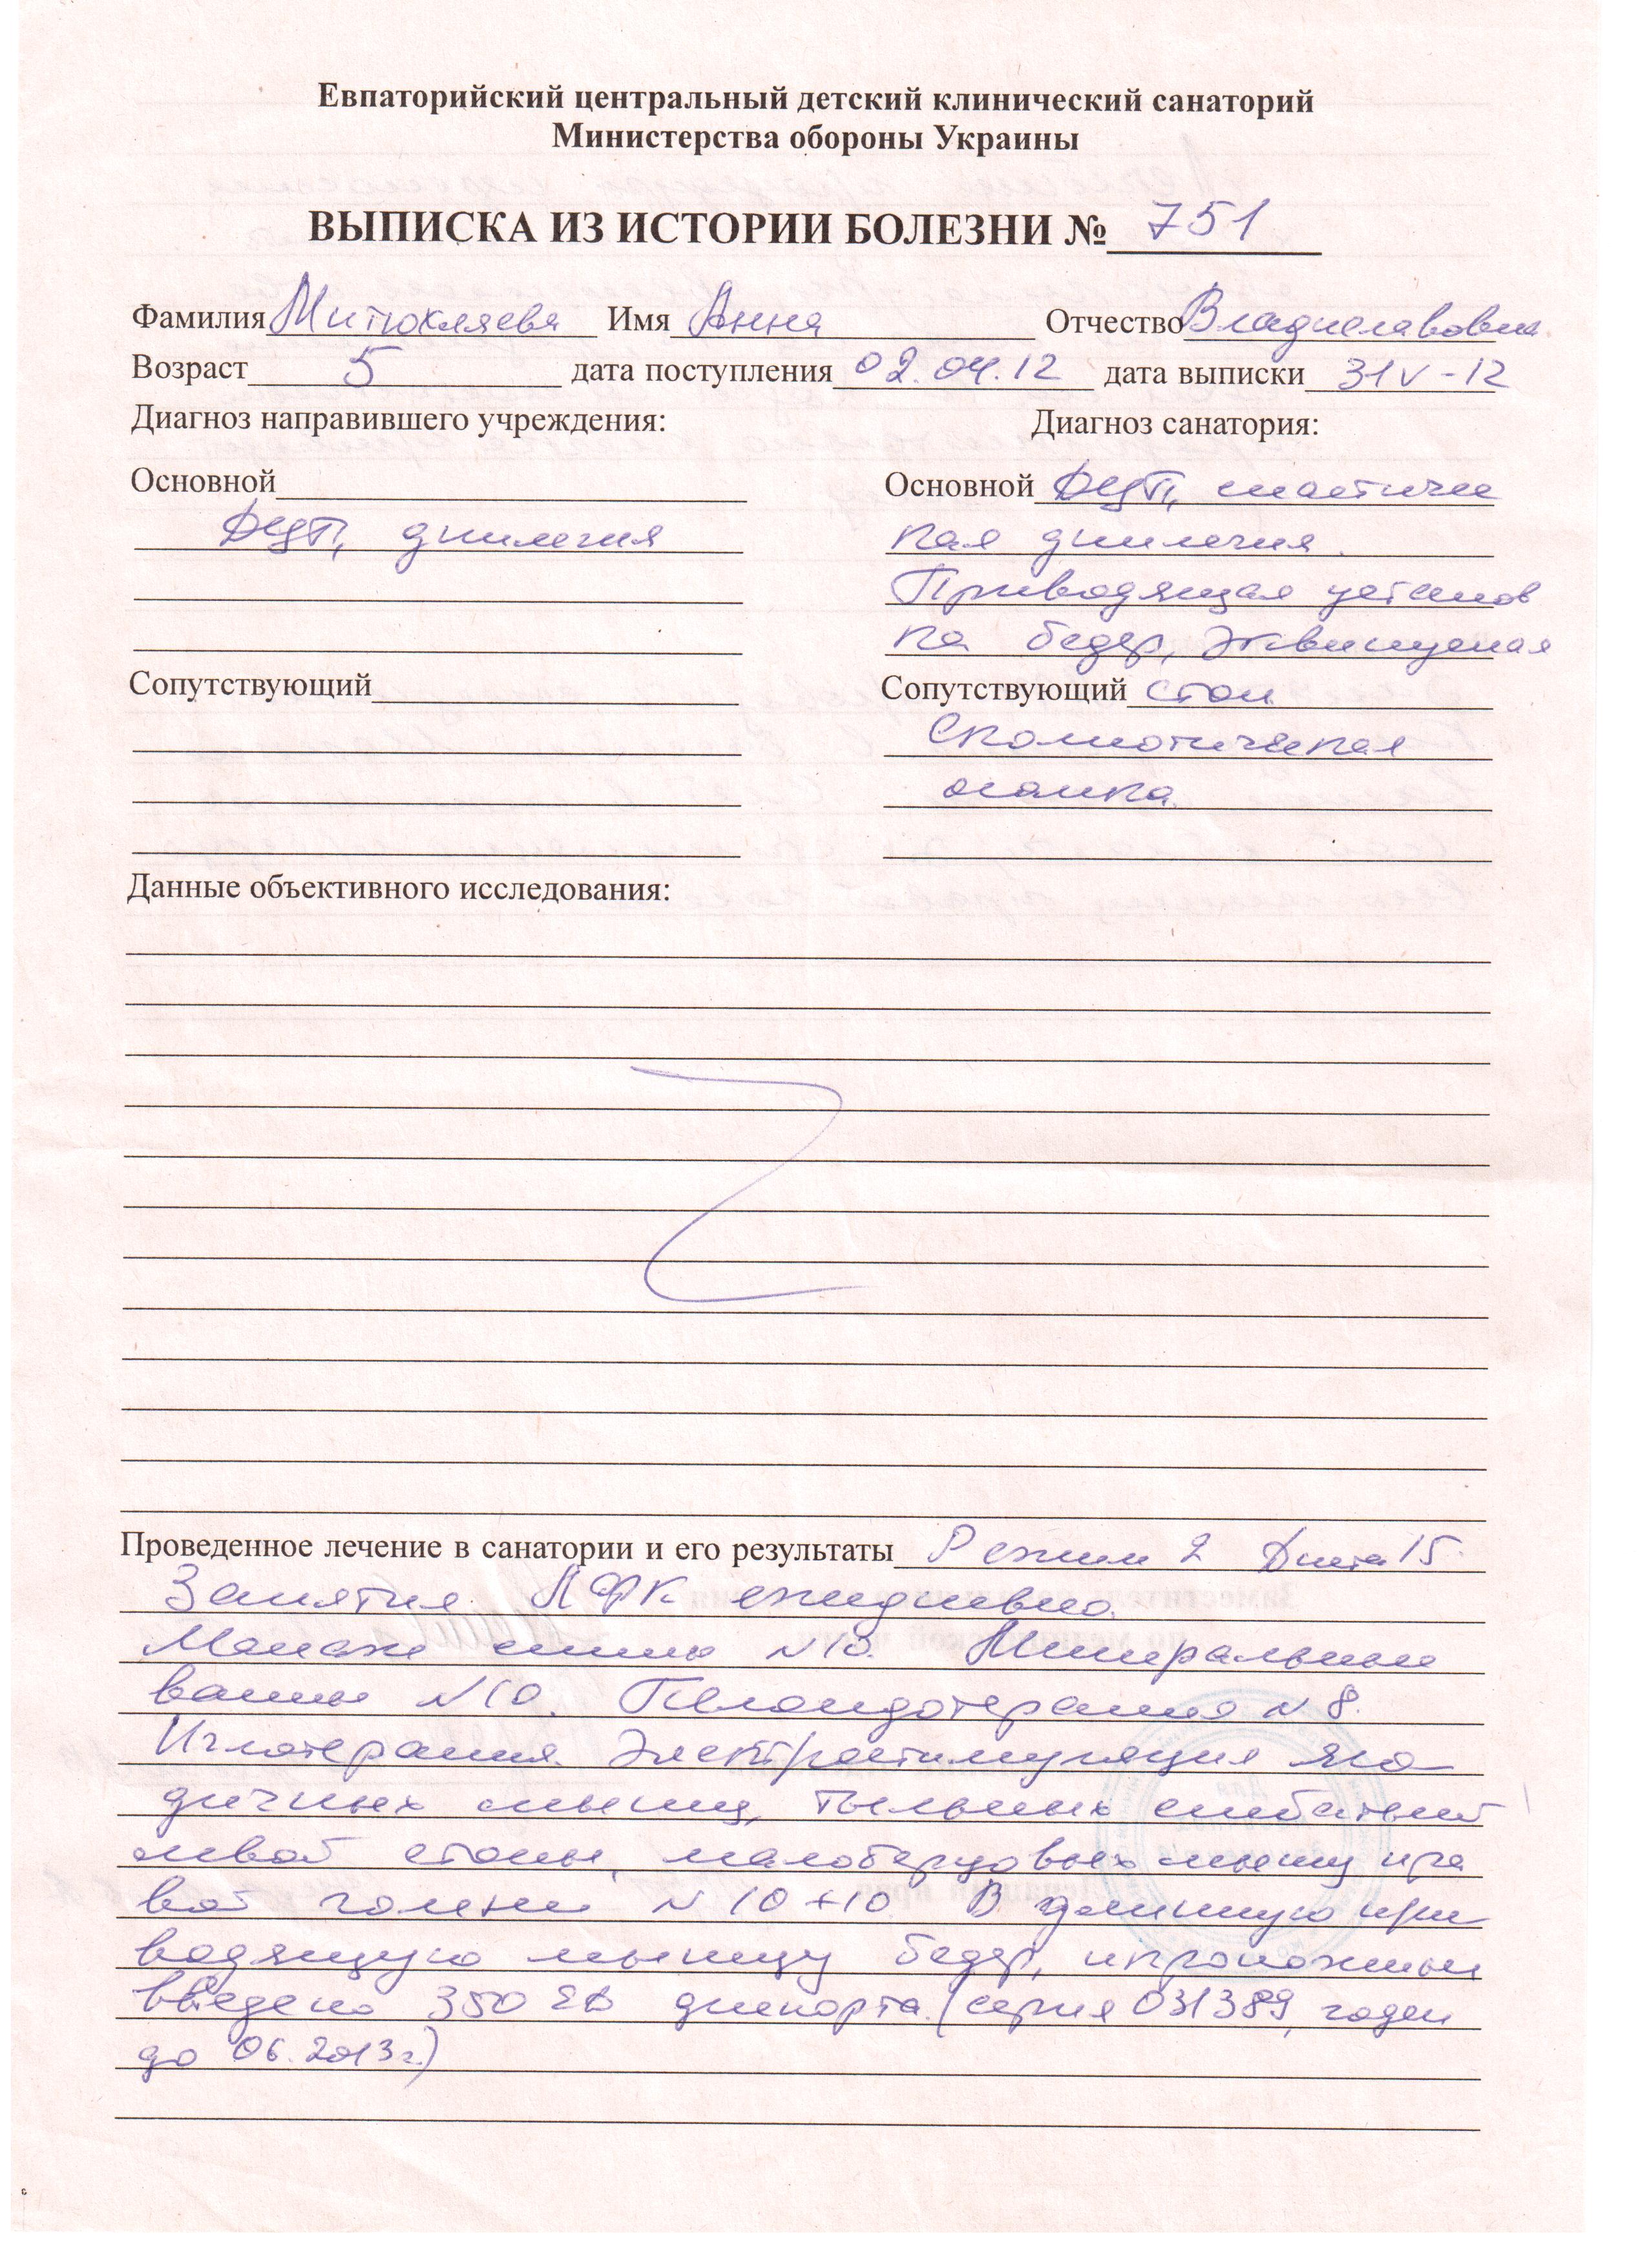 Евпаторийский центральный детский клинический санаторий
Министерства обороны Украины
ВЫПИСКА ИЗ ИСТОРИИ БОЛЕЗНИ № 751
Фамилия Митюкляева Имя Анна Отчество Владиславовна
Возраст 5 дата поступления 02.04.12 дата выписки 31 V - 12
Диагноз направившего учреждения: Диагноз санатория:
Основной Основной ДЦП, спастичес
ДЦП, диплегия кая диплегия.
Приводящая установ
ка бедер, эквинусная
Сопутствующий Сопутствующий стоп.
Сколиотическая
осанка.
Данные объективного исследования:
Проведенное лечение в санатории и его результаты Режим 2 Диета 15.
Занятия ЛФК ежедневно.
Массаж спины N10. Минеральные
ванны N10. Пелоидотерапия N8.
Иглотерапия. Электростимуляция яго
дичных мышц, тыльных сгибателей
левой стопы, малоберцовых мышц пра
вой голени N10+10. В длинную при
водящую мышцу бедер, икроножные
введено 350 ЕД диспорта. (серия 031389, годен
до 06.2013г.)